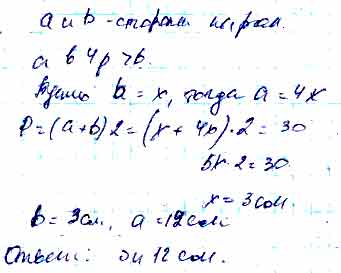 a и b - стороны парал.
a в 4 р > b.
Пусть b = x, тогда a = 4x
P = (a+b)2 = (x + 4x)·2 = 30
5x·2 = 30
x = 3 см.
b = 3 см, a = 12 см
Ответ: 3 и 12 см.